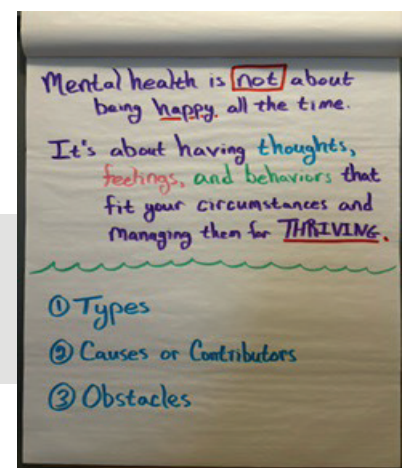 Mental health is not about
being happy all the time.
It's about having thoughts,
feelings, and behaviors that
fit your circumstances and
managing them for THRIVING.
① Types
② Causes or Contributors
③ Obstacles